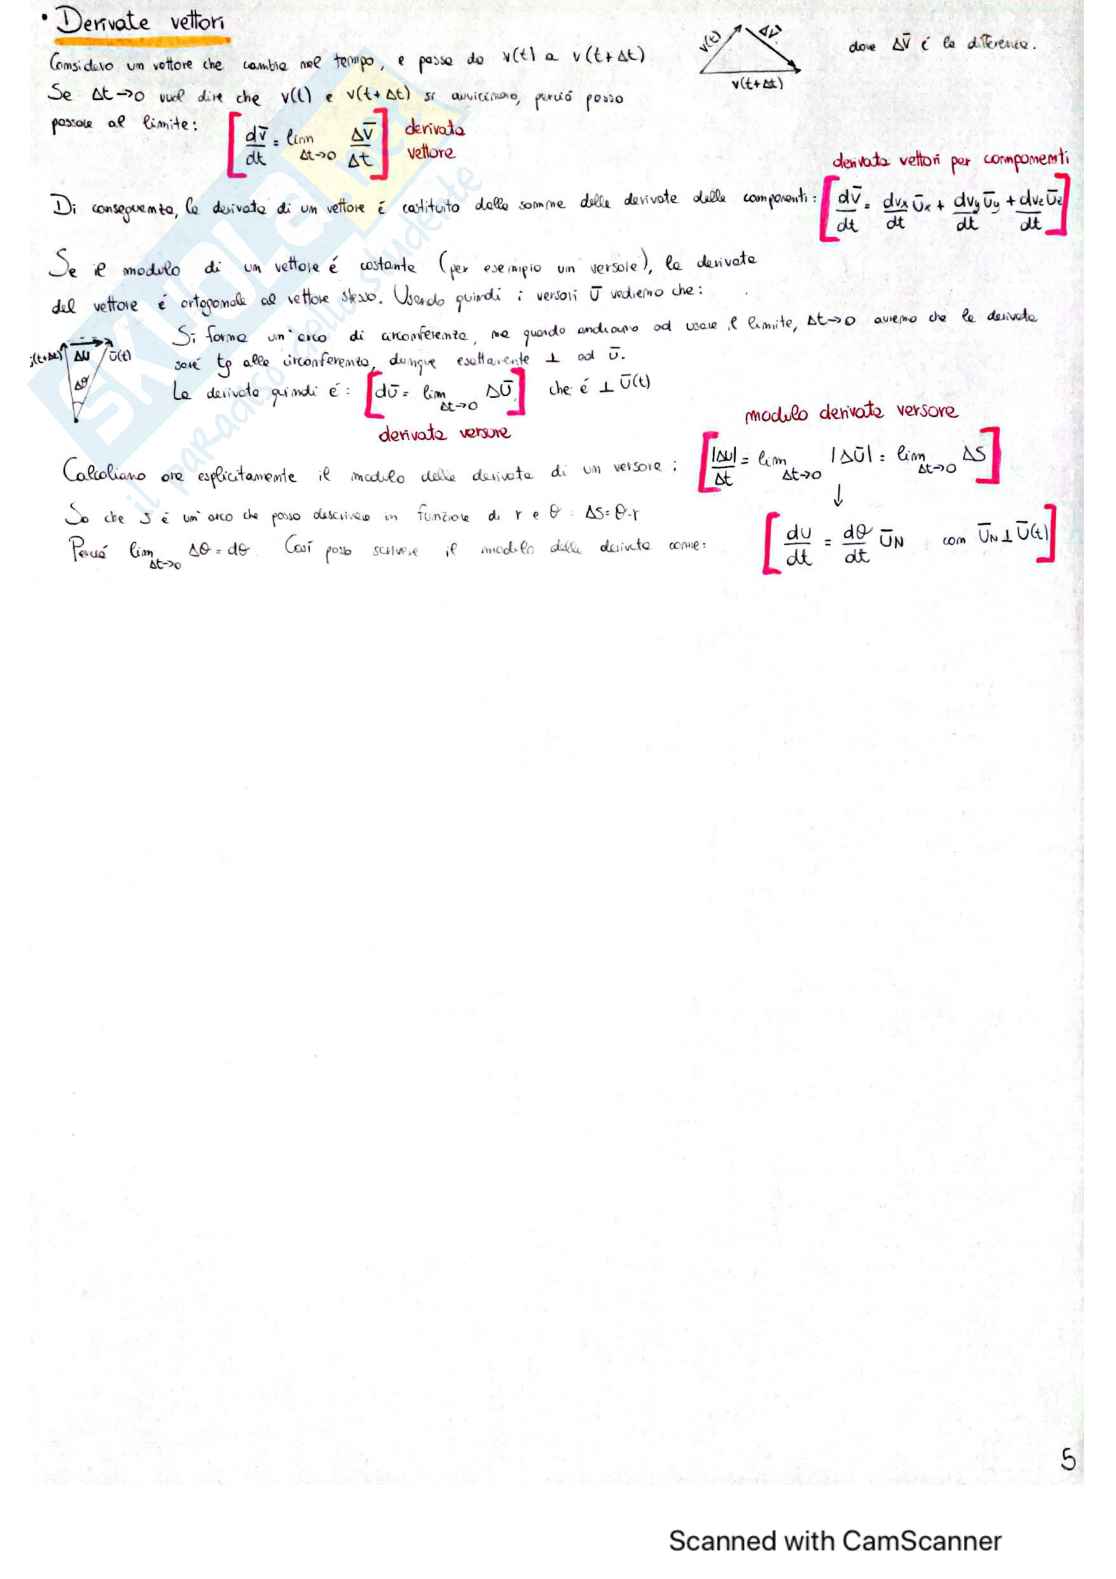 • Derivate vettori
Considero un vettore che cambia nel tempo, e passa da v(t) a v(t+Δt)
v(t) Δv̄ v(t+Δt)
dove Δv̄ é la differenza.
Se Δt→0 vuol dire che v(t) e v(t+Δt) si avvicinano, perció posso
passare al limite: [dv̄/dt = lim Δt→0 Δv̄/Δt] derivata vettore
derivata vettori per componenti
Di conseguenza, la derivata di un vettore é costituito dalla somma delle derivate delle componenti: [dv̄/dt = dvx/dt ūx + dvy/dt ūy + dvz/dt ūz]
Se il modulo di un vettore é costante (per esempio un versore), la derivata
del vettore é ortogonale al vettore stesso. Usando quindi i versori ū vediamo che:
Si forma un'arco di circonferenza, ma quando andiamo ad usare il limite, Δt→0 avremo che la derivata
(t+Δt) Δū ū(t) Δθ
sará tg alla circonferenza, dunque esattamente ⊥ ad ū.
La derivata quindi é: [dū = lim Δt→0 Δū] che é ⊥ ū(t)
derivata versore
modulo derivata versore
Calcoliamo ora esplicitamente il modulo della derivata di un versore: [|Δu|/Δt = lim Δt→0 |Δū| = lim Δt→0 ΔS]
↓
So che S é un'arco che posso descrivere in funzione di r e θ: ΔS=θ·r
Perció lim Δt→0 Δθ = dθ. Cosí posso scrivere il modulo della derivata come: [du/dt = dθ/dt ūN con ūN ⊥ ū(t)]
5
Scanned with CamScanner
SKUOLA.net
il paradiso dello studente